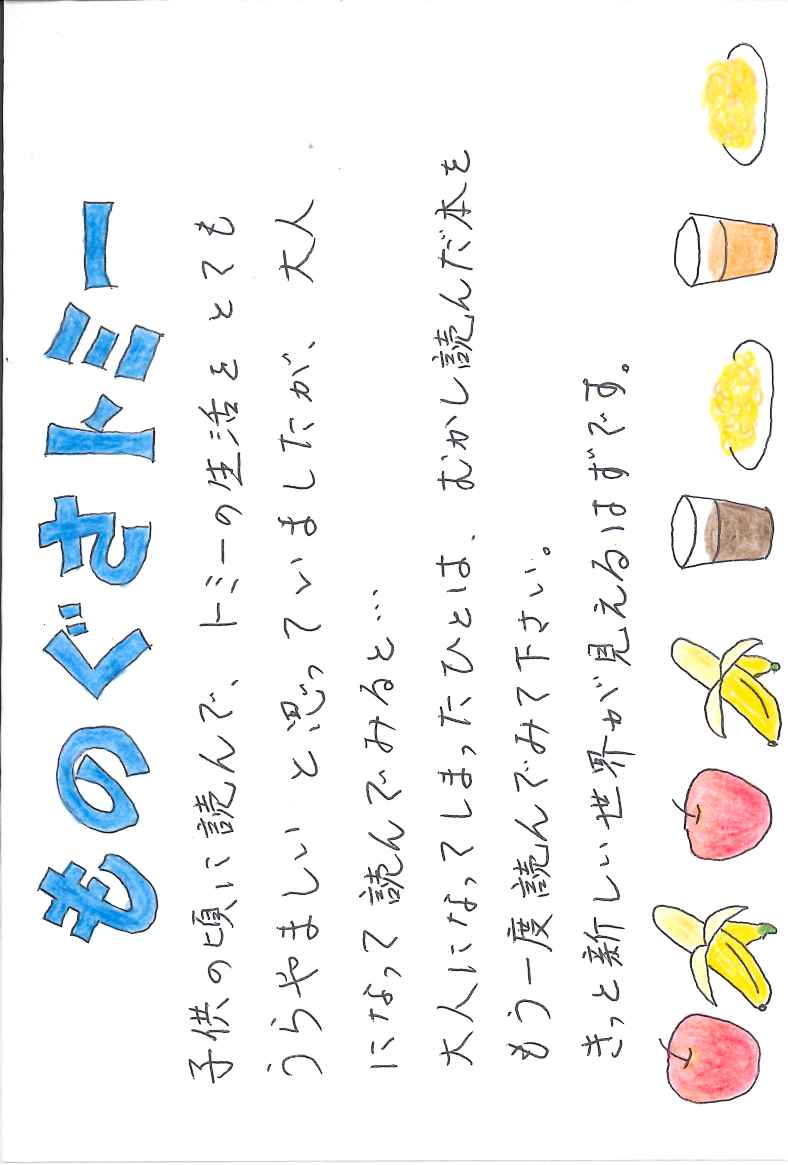 ものぐさトミー
子供の頃に読んで、トミーの生活をとても
うらやましいと思っていましたが、大人
になって読んでみると…
大人になってしまったひとは、むかし読んだ本を
もう一度読んでみて下さい。
きっと新しい世界が見えるはずです。